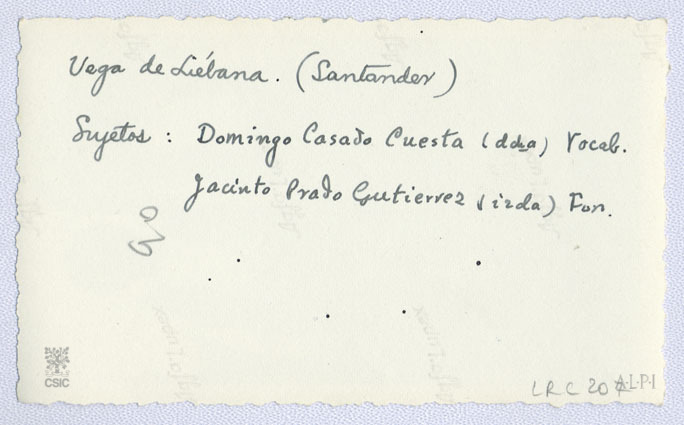 Vega de Liébana. (Santander)
Sujetos : Domingo Casado Cuesta (ddₐa) Vocab.
Jacinto Prado Gutierrez (izda) Fon.
CSIC
LRC 207
A·L·P·I